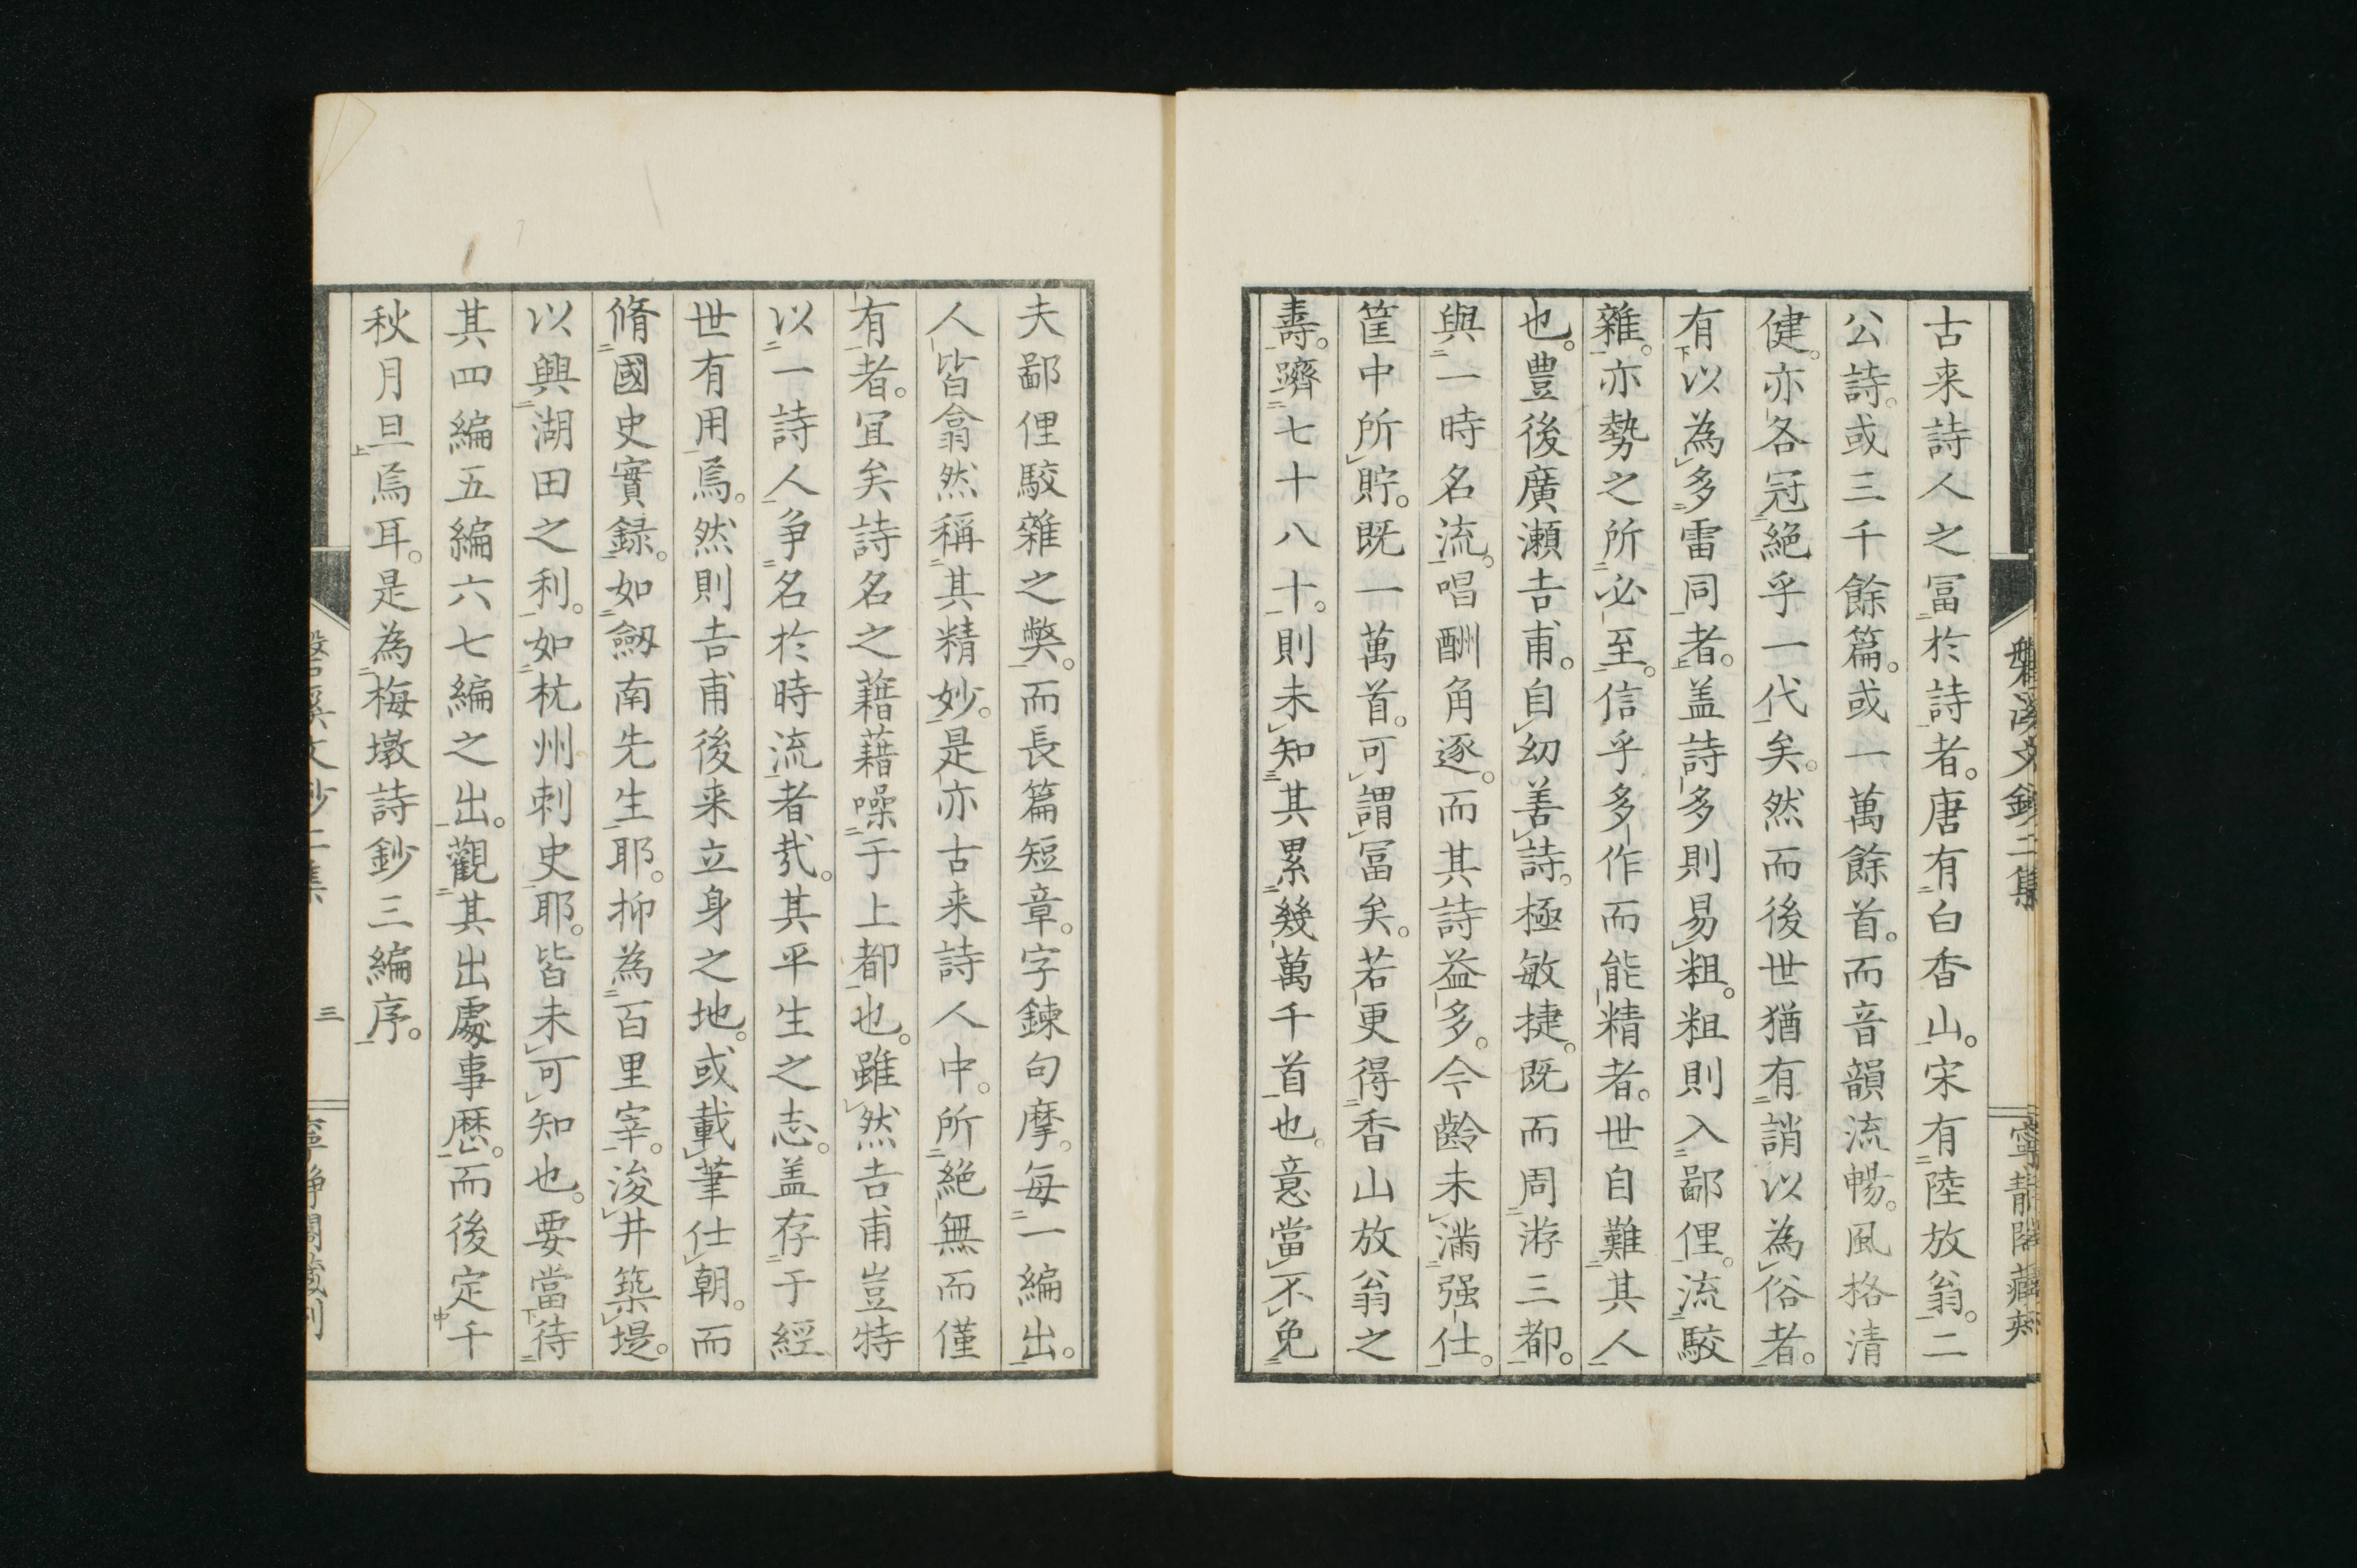 古来詩人之冨於詩者。唐有白香山。宋有陸放翁。二
公詩。或三千餘篇。或一萬餘首。而音韻流暢。風格清
健。亦各冠絶乎一代矣。然而後世猶有誚以為俗者。
有以為多雷同者。盖詩多則易粗。粗則入鄙俚。流駁
雜。亦勢之所必至。信乎多作而能精者。世自難其人
也。豊後廣瀬吉甫。自幼善詩。極敏捷。既而周游三都。
與一時名流。唱酬角逐。而其詩益多。今齡未滿强仕。
筐中所貯。既一萬首。可謂冨矣。若更得香山放翁之
壽。躋七十八十。則未知其累幾萬千首也。意當不免
夫鄙俚駁雜之獘。而長篇短章。字鍊句摩。每一編出。
人皆翕然稱其精妙。是亦古来詩人中。所絶無而僅
有者。宜矣詩名之藉藉噪于上都也。雖然吉甫豈特
以一詩人争名於時流者㢤。其平生之志。盖存于經
世有用焉。然則吉甫後来立身之地。或載筆仕朝。而
脩國史實録。如劔南先生耶。抑為百里宰。浚井築堤。
以興湖田之利。如杭州刺史耶。皆未可知也。要當待
其四編五編六七編之出。觀其出處事歴。而後定千
秋月旦焉耳。是為梅墩詩鈔三編序。
三